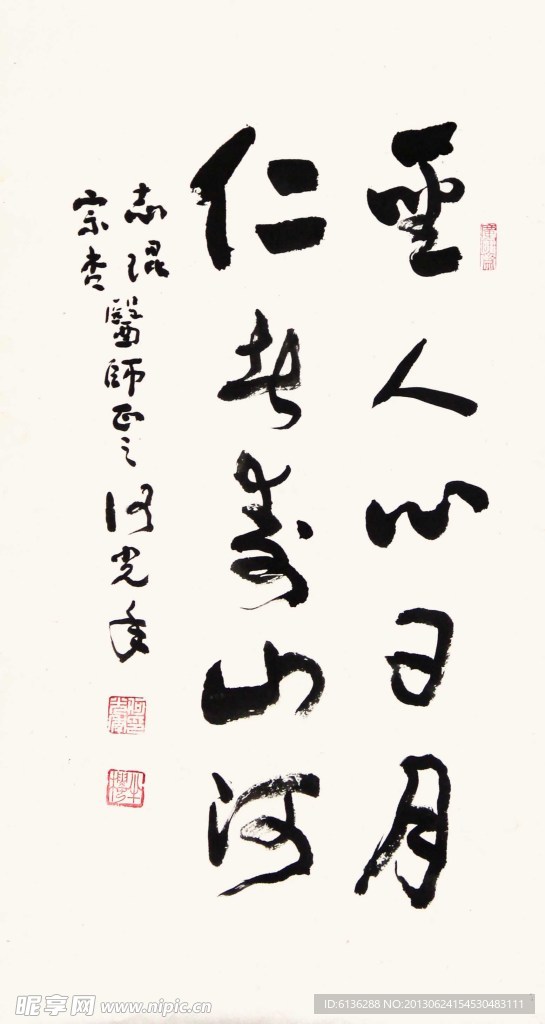 聖人心日月
仁者壽山河
志琨
宗杏
醫師正之
何光年
昵享网 www.nipic.cn
ID:6136288 NO:20130624154530483111